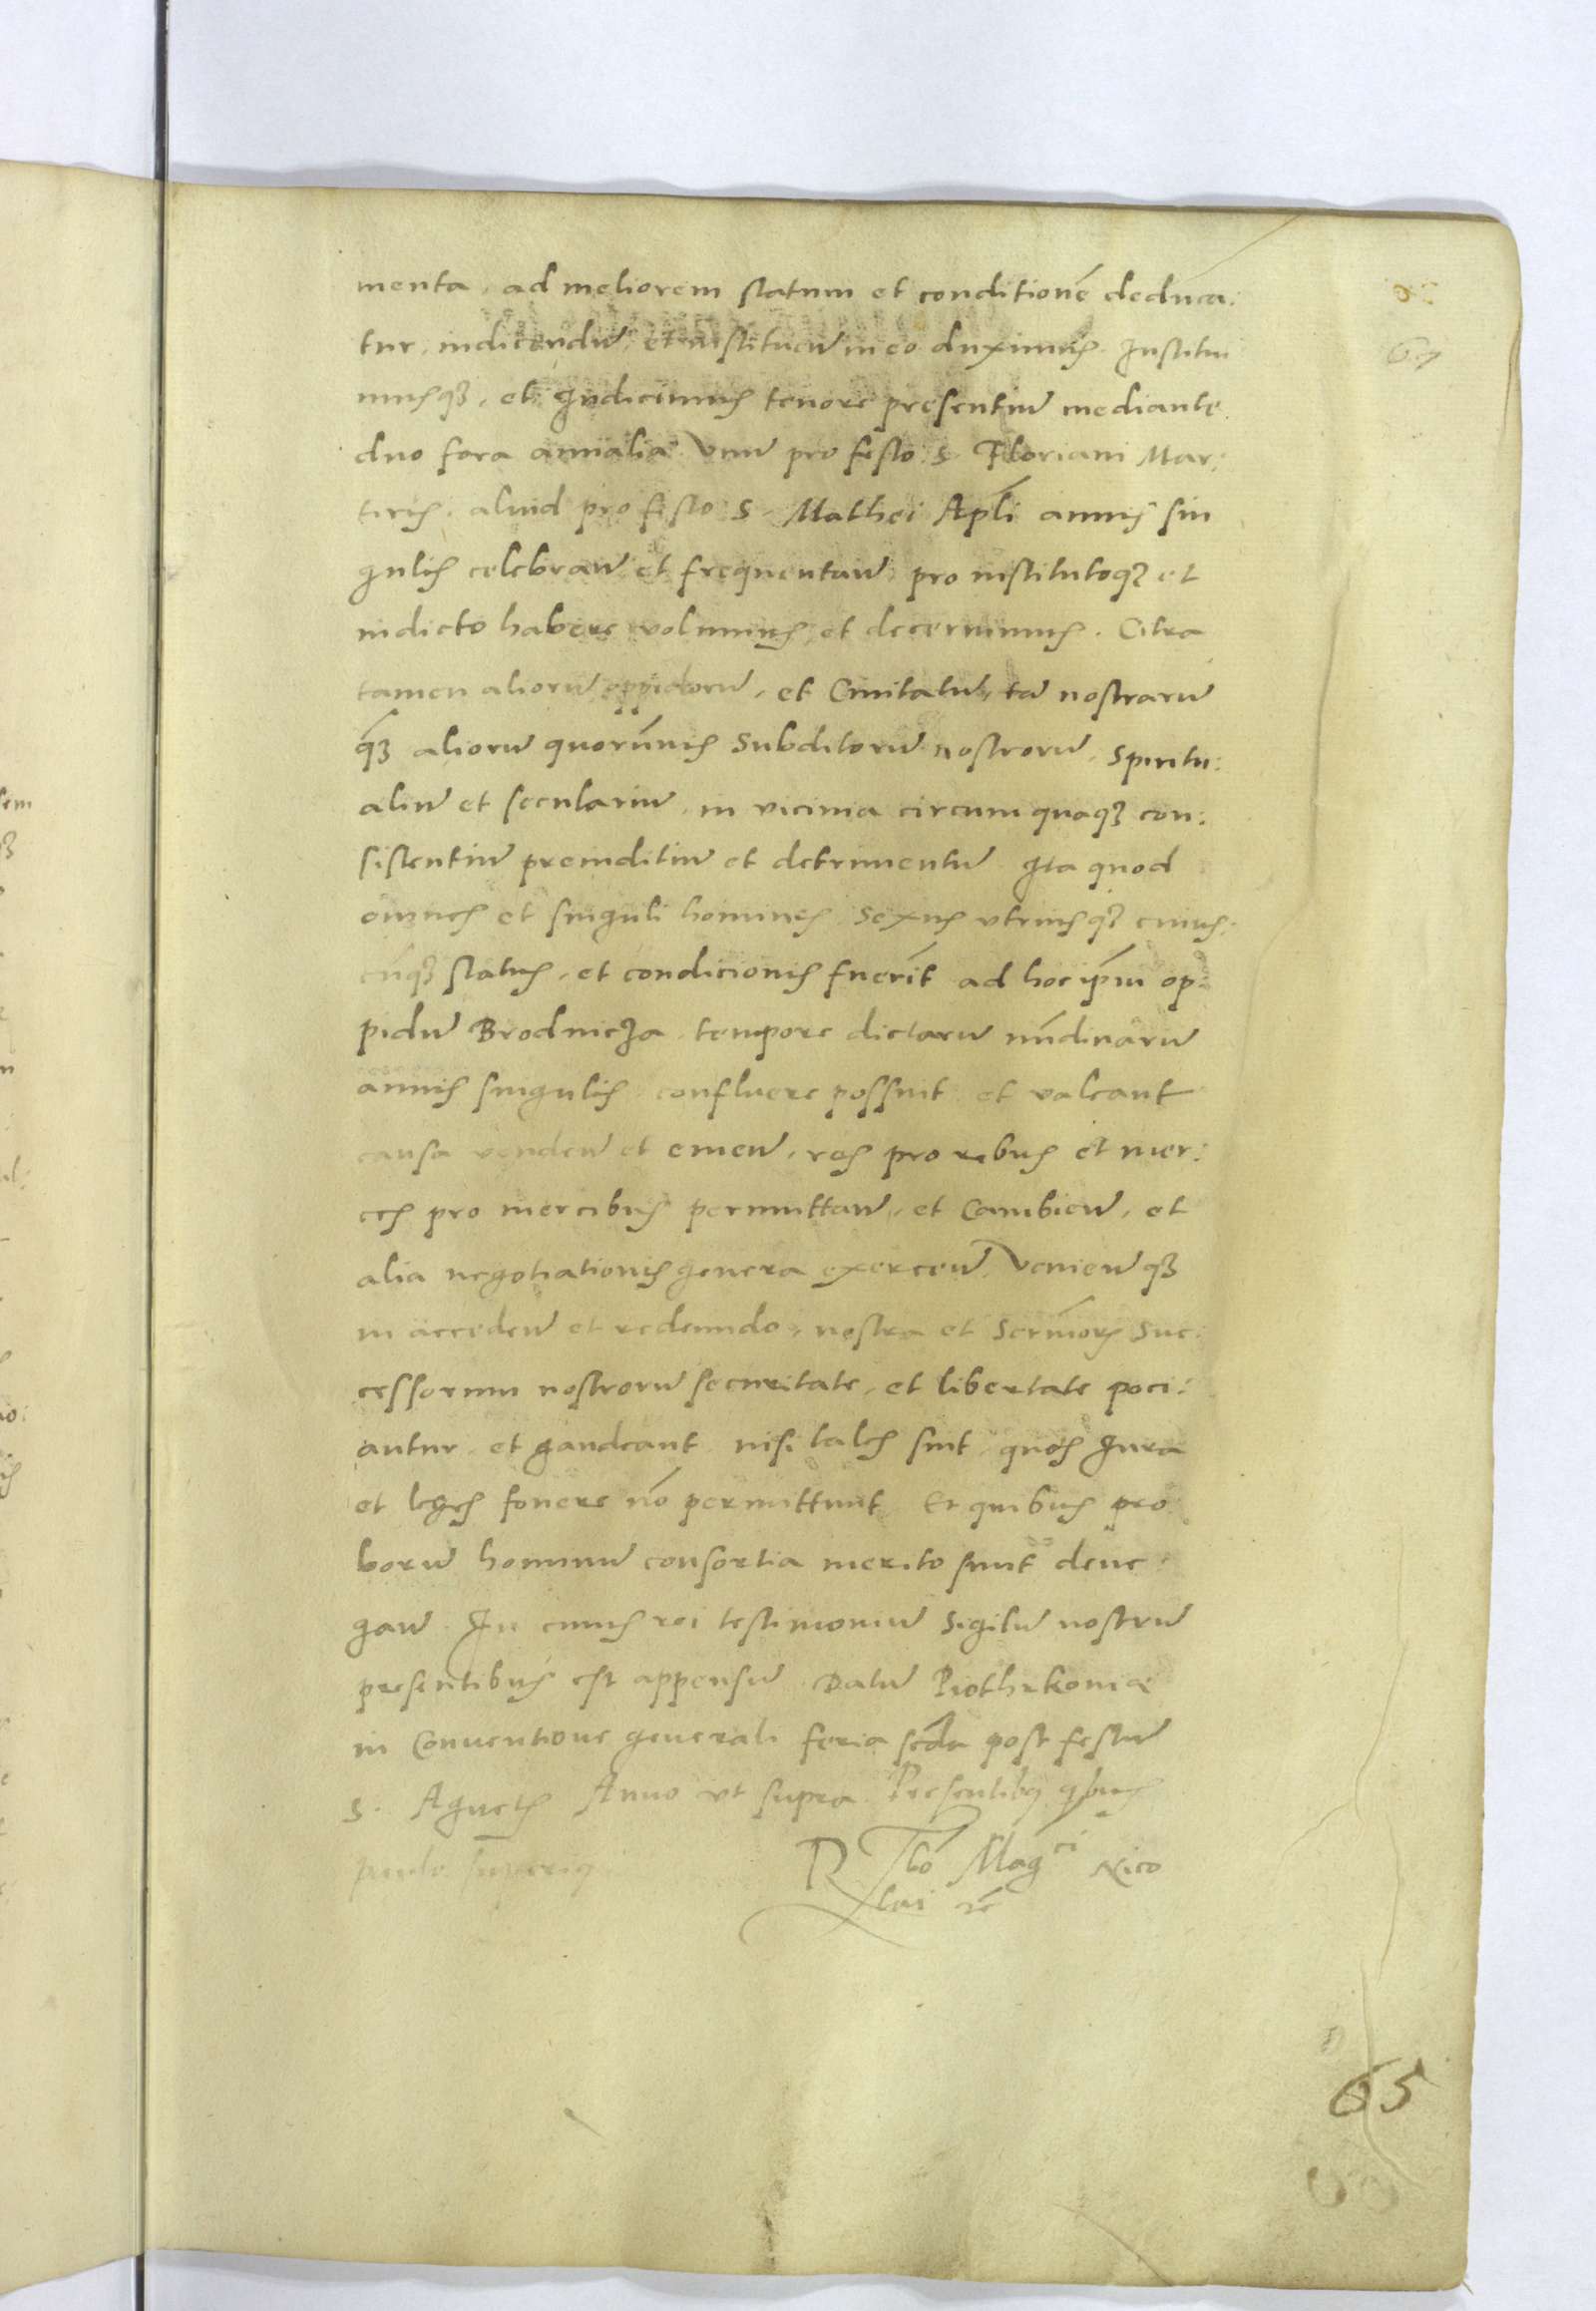 menta, ad meliorem statum et conditionē deduca:
tur, indicendū, et instituenū in eo duximus. Institui
musqꝫ, et Indicimus tenore presentiū mediante
duo fora annalia Vnū pro festo S. Floriani Mar:
tiris. aliud pro festo S. Mathei Apl̄i annis sin
gulis celebranū et frequentanū, pro institutoqꝫ et
indicto habere volumus et decernimus. Citra
tamen aliorū oppidorū, et Ciuitatū, tā nostrarū
qꝫ aliorū quorūuis Subditorū nostrorū, Spiritu:
aliū et seculariū, in vicinia circumquaqꝫ con:
sistentiū preiuditiū et detrimentū Ita quod
omnes et singuli homines Sexus vtriusqꝫ cuius:
cūqꝫ status, et condicionis fuerīt ad hoc ip̄m op:
pidū BrodnicZa tempore dictarū nūdinarū
annis singulis confluere possint et valeant
causa vendenū et emenū, res pro rebus et mer:
ces pro mercibus permuttanū, et Cambienū, et
alia negotiationis genera exercenū, Venienū qꝫ
in accedenū et redeundo, nostra et Serm̄orꝫ Suc:
cessorum nostrorū securitate, et libertate poci:
antur et gaudeant nisi tales sint quos Jura
et leges fouere nō permittunt Et quibus pro
borū hominū consortia merito sunt dene
ganū In cuius rei testimoniū Sigilū nostrū
presentibus est appensū Datū Piothrkoniæ
in Conuentione generali feria secda post festū
S. Agnetis Anno vt supra Presentibꝫ qbus
paulo superiꝗ R Tlō Mag ci Nico
lai rē
65